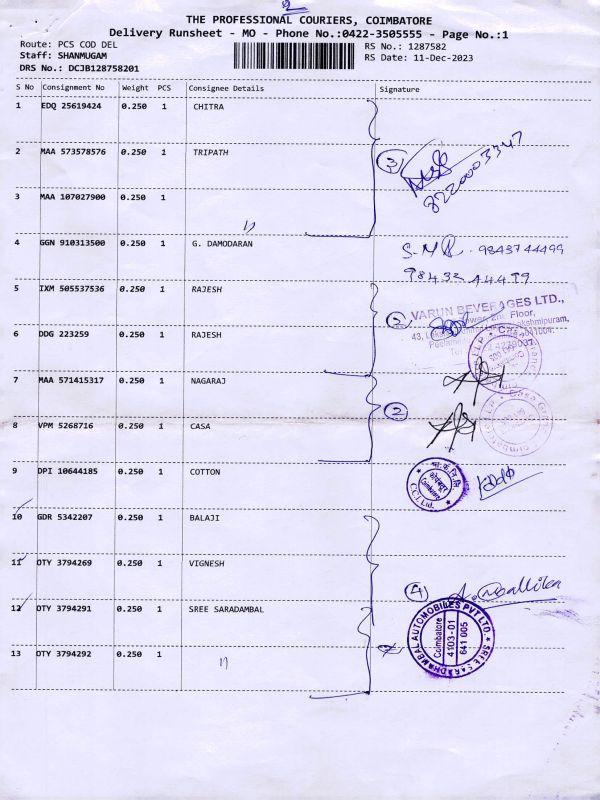 2
THE PROFESSIONAL COURIERS, COIMBATORE
Delivery Runsheet - MO - Phone No.:0422-3505555 - Page No.:1
Route: PCS COD DEL
RS No.: 1287582
Staff: SHANMUGAM
RS Date: 11-Dec-2023
DRS No.: DCJB128758201
S No Consignment No Weight PCS Consignee Details Signature
1 EDQ 25619424 0.250 1 CHITRA
2 MAA 573578576 0.250 1 TRIPATH
3
8220003347
3 MAA 107027900 0.250 1
4 GGN 910313500 0.250 1 G. DAMODARAN
9843744499
5 IXM 505537536 0.250 1 RAJESH
VARUN BEVERAGES LTD.,
Floor,
6 DDG 223259 0.250 1 RAJESH
7 MAA 571415317 0.250 1 NAGARAJ
2
8 VPM 5268716 0.250 1 CASA
9 DPI 10644185 0.250 1 COTTON
Coimbatore
C.C.I. Ltd.
10 GDR 5342207 0.250 1 BALAJI
11 OTY 3794269 0.250 1 VIGNESH
4
12 OTY 3794291 0.250 1 SREE SARADAMBAL
SREE SARADHAMBAL AUTOMOBILES PVT LTD.
Coimbatore
4103-01
641 005
13 OTY 3794292 0.250 1